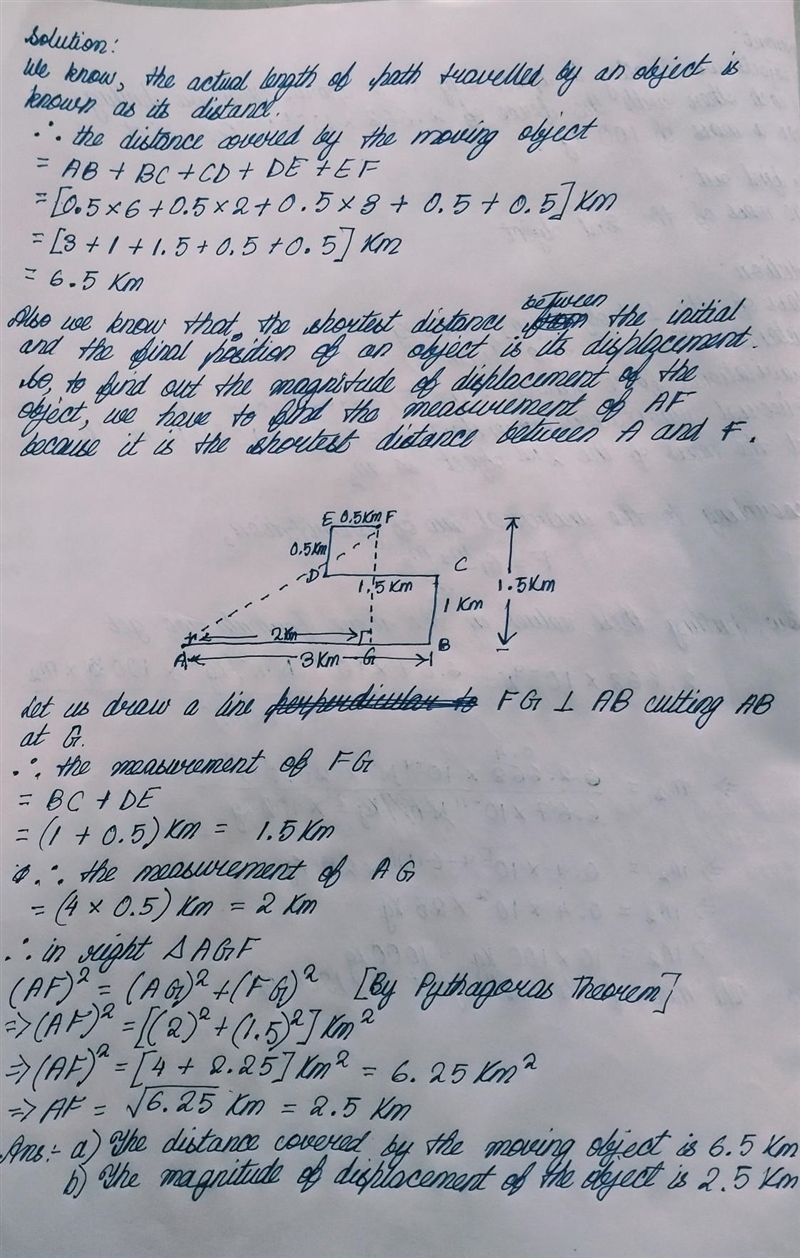 Solution:
We know, the actual length of path travelled by an object is
known as its distance.
∴ the distance covered by the moving object
= AB + BC + CD + DE + EF
= [0.5×6 + 0.5×2 + 0.5×3 + 0.5 + 0.5] Km
= [3 + 1 + 1.5 + 0.5 + 0.5] Km
= 6.5 Km
between
Also we know that, the shortest distance from the initial
and the final position of an object is its displacement.
So, to find out the magnitude of displacement of the
object, we have to find the measurement of AF
because it is the shortest distance between A and F.
E 0.5Km F
0.5Km
D
C
1.5Km
1.5Km
1 Km
2Km
A
G
B
3Km
Let us draw a line perperdicular to FG ⊥ AB cutting AB
at G.
∴ the measurement of FG
= BC + DE
= (1 + 0.5) Km = 1.5 Km
∴ the measurement of AG
= (4 × 0.5) Km = 2 Km
∴ in right △AGF
(AF)² = (AG)² + (FG)² [By Pythagoras Theorem]
=> (AF)² = [(2)² + (1.5)²] Km²
=> (AF)² = [4 + 2.25] Km² = 6.25 Km²
=> AF = √6.25 Km = 2.5 Km
Ans:- a) The distance covered by the moving object is 6.5 Km
b) The magnitude of displacement of the object is 2.5 Km